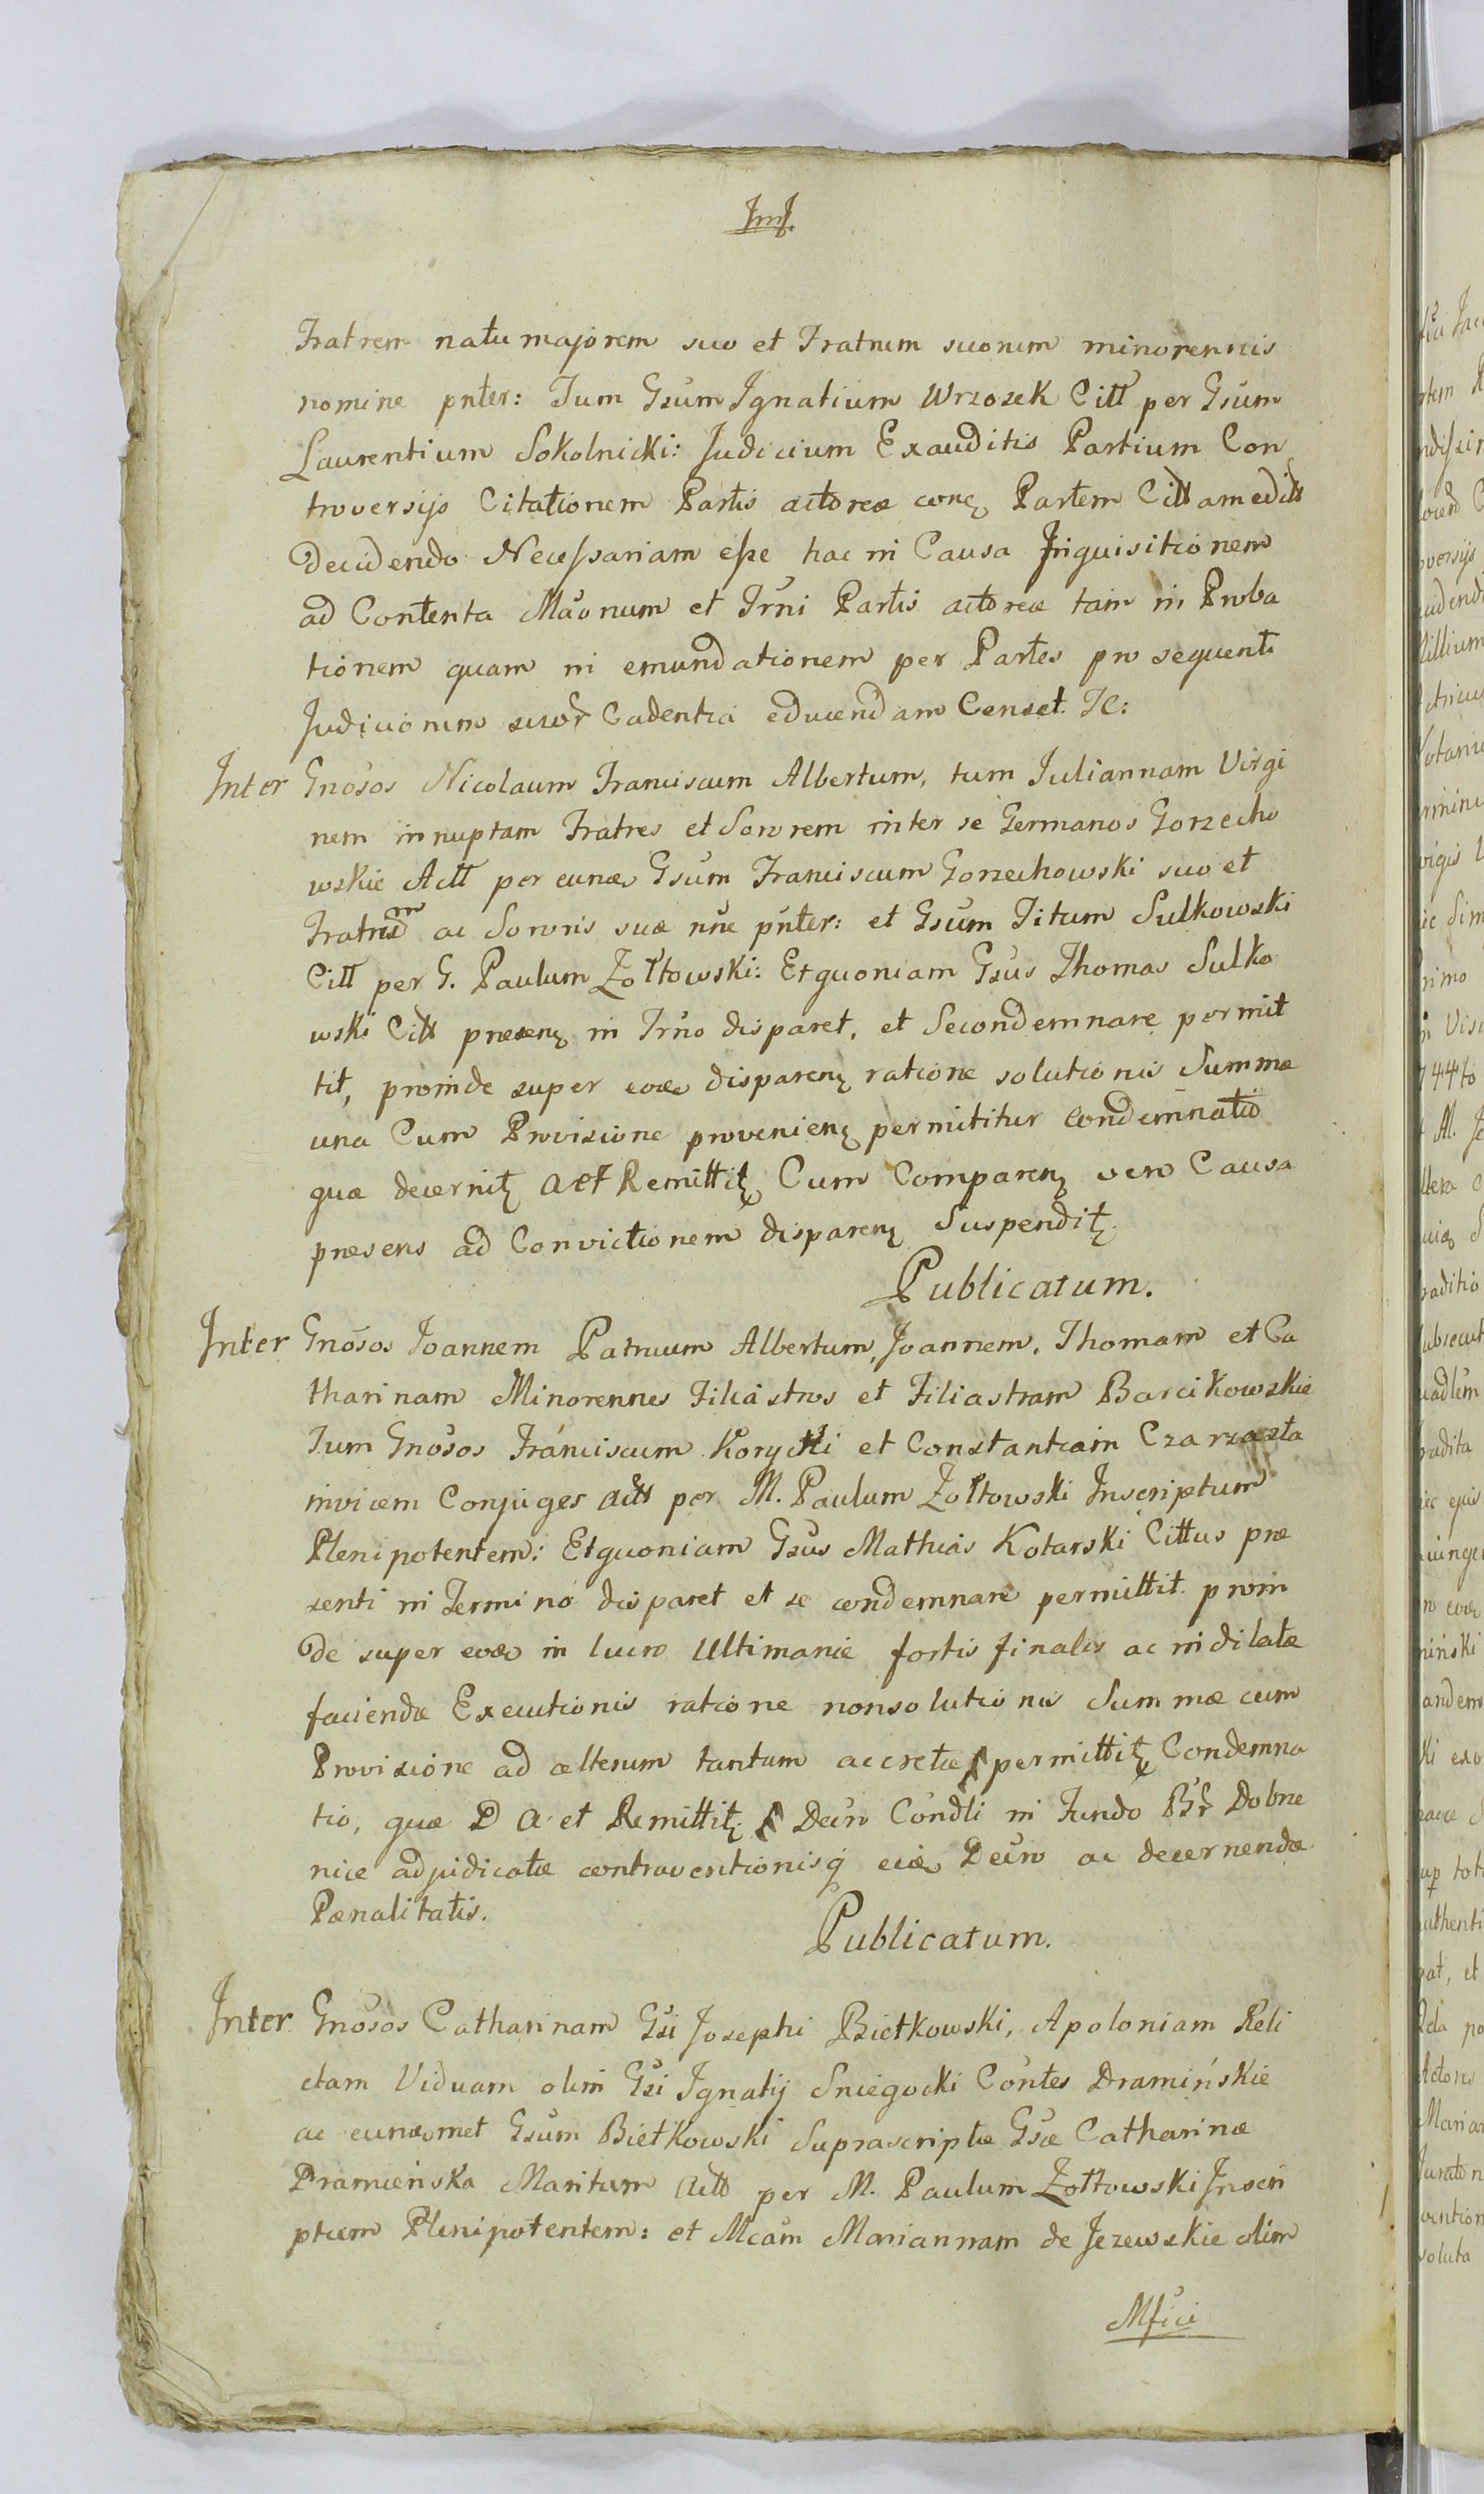 Fratrem natu majorem suo et Fratrum suorum minorennis
nomine pnter: Tum Gsum Ignatium Wrzosek Citt per Gsum
Laurentium Sokolnicki: Judicium Exauditis Partium Con
troversijs Citationem Partis actoreæ Partem Citt am
Decidendo Necessariam esse hac in Causa Inquisitionem
ad Contenta et Trni Partis actoreæ tam in Proba
tionem quam in emundationem per Partes pro sequenti
Judiciorum suor Cadentia educendam Censet.
Inter Gnosos Nicolaum Franciscum Albertum, tum Juliannam Virgi
nem innuptam Fratres et Sororem inter se Germanos Gorzecho
wskie Actt per Gsum Franciscum Gorzechowski suo et
Fratrum ac Sororis suæ nne pnter: et Gsum Titum Sulkowski
Citt per G. Paulum Żołtowski: Et quoniam Gsus Thomas Sulko
wski Citt præsenꝫ in Trno disparet, et Se condemnare permit
tit, proinde super disparenꝫ ratione solutionis Summæ
una Cum Provisione provenienꝫ permititur condemnatio
quæ decernitꝫ act Remittitꝫ Cum Comparenꝫ vero Causa
præsens ad Convictionem disparenꝫ Suspenditꝫ.
Publicatum.
Inter Gnosos Joannem Patruum Albertum, Joannem, Thomam et Ca
tharinam Minorennes Filiastros et Filiastram Barcikowskie
Tum Gnosos Franciscum Korycki et Constantiam Czarzasta
invicem Conjuges actt per M. Paulum Żołtowski Inscriptum
Plenipotentem: Et quoniam Gsus Mathias Kotarski Cittus præ
senti in Termino disparet et se condemnare permittit proin
de super in lucro Ultimariæ fortis finalis ac indilatæ
faciendæ Executionis ratione nonsolutionis Summæ cum
Provisione ad alterum tantum accretæ permittitꝫ Condemna
tio, quæ D A et Remittitꝫ Decro Condli in Fundo Br Dobrze
nice adjudicatæ contraventionisq Decro ac decernendæ
Pænalitatis.
Publicatum.
Inter Gnosos Catharinam Gsi Josephi Bietkowski, Apoloniam Reli
ctam Viduam olim Gsi Ignatij Sniegocki Contes Dramińskie
ac Gsum Bietkowski Suprascriptæ Gsæ Catharinæ
Dramieńska Maritum actt per M. Paulum Żołtowski Inscri
ptum Plenipotentem: et Mcam Mariannam de Jezewskie olim
Mfici